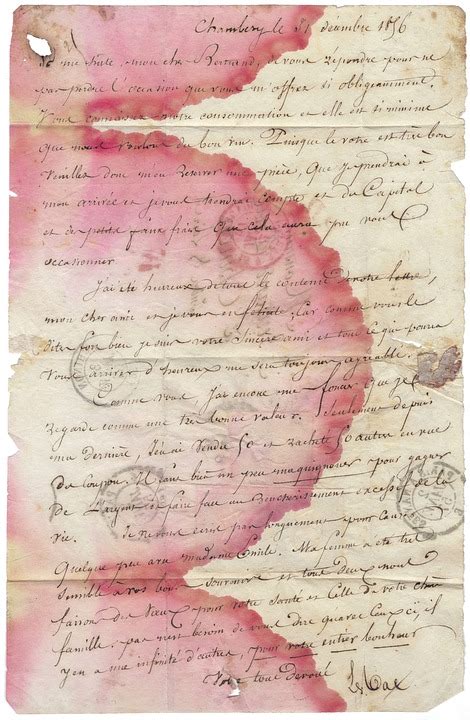 Chambéry le 31 décembre 1856
Je me hâte, mon cher Bertrand, de vous répondre pour ne
pas perdre l'occasion que vous m'offrez si obligeamment.
Vous connaissez notre consommation et elle est si minime
que nous voulons du bon vin. Puisque le votre est très bon
veuillez donc m'en réserver une pièce, que je prendrai à
mon arrivée et je vous tiendrai compte et du Capital
et des petits faux frais que cela aura pu vous
occasionner
J'ai été heureux de tout le contenu de votre lettre,
mon cher ami et je vous en félicite, car comme vous le
dites fort bien je suis votre sincère ami et tout ce qui pourra
vous arriver d'heureux me sera toujours agréable.
Comme vous, j'ai encore me que je
regarde comme une très bonne valeur. Seulement depuis
ma dernière, j'en ai vendu 50 et racheté 50 autres en vue
du coupon. Il faut bien un peu maquignoner pour gagner
de l'argent et faire face au renchérissement excessif de la
vie. Je ne vous écris pas longuement pour cause
Quelque peu madame Emile. Ma femme a été très
sensible à vos bons souvenirs et tous deux nous
faisons des vœux pour votre santé et celle de votre chère
famille, pas n'est besoin de vous dire que avec ceux ci, il
y en a une infinité d'autres, pour votre entier bonheur
Votre tout dévoué